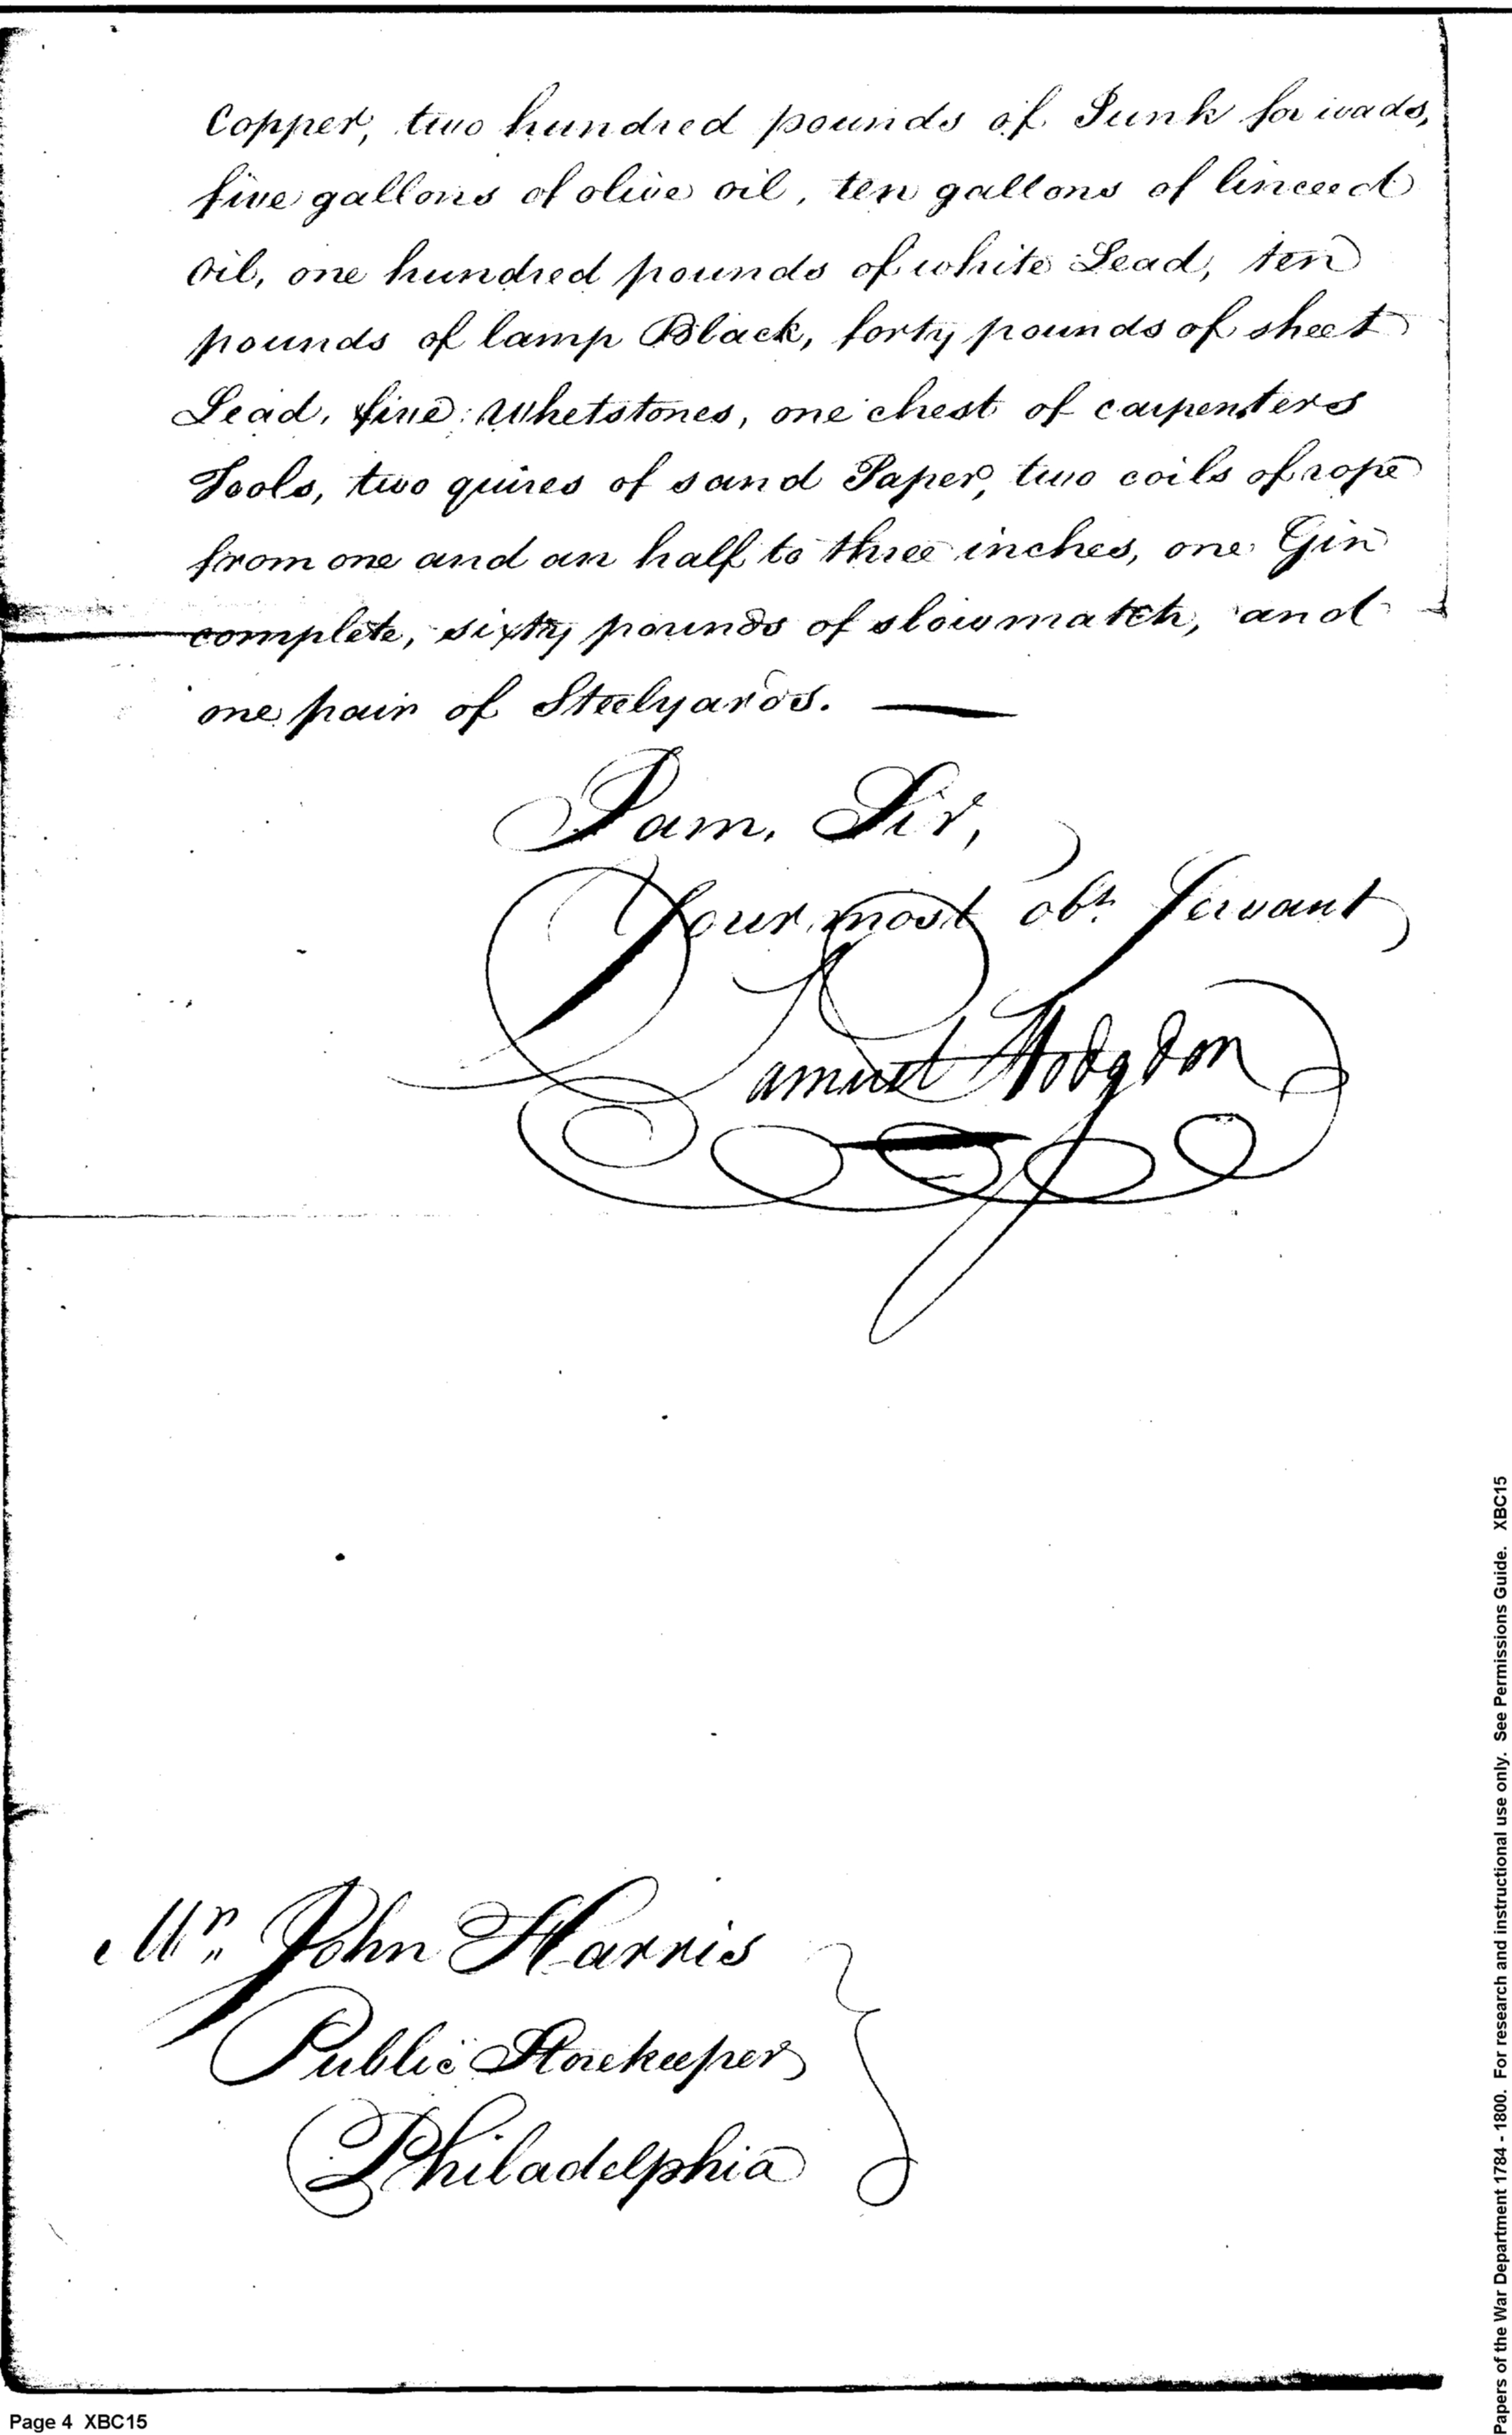 Copper, two hundred pounds of Junk for wads,
five gallons of olive oil, ten gallons of linceed
oil, one hundred pounds of white Lead, ten
pounds of lamp Black, forty pounds of sheet
Lead, five Whetstones, one chest of carpenters
Tools, two quires of sand Paper, two coils of rope
from one and an half to three inches, one Gin
complete, sixty pounds of slowmatch, and
one pair of Steelyards.
I am, Sir,
Your most obt. Servant
Samuel Hodgdon
Mr. John Harris
Public Storekeeper
Philadelphia
Page 4 XBC15
Papers of the War Department 1784 - 1800. For research and instructional use only. See Permissions Guide. XBC15